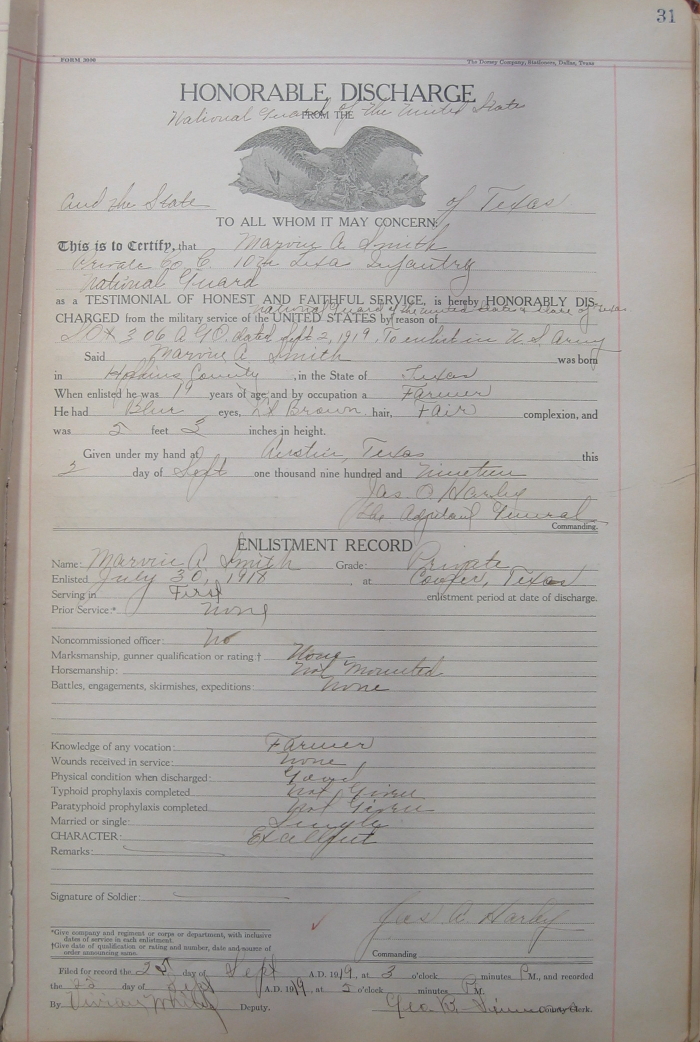 31
FORM 3090 The Dorsey Company, Stationers, Dallas, Texas
HONORABLE DISCHARGE
National Guard of the United State
FROM THE
and the State of Texas
TO ALL WHOM IT MAY CONCERN:
This is to Certify, that Marvin A. Smith
Private Co C. 10th Texa Infantry
National Guard
as a TESTIMONIAL OF HONEST AND FAITHFUL SERVICE, is hereby HONORABLY DIS-
National Guard of the United State & State of Texas
CHARGED from the military service of the UNITED STATES by reason of
306 A G O. dated Sept 2, 1919. To enlist in U.S. Army
Said Marvin A. Smith was born
in Hopkins County, in the State of Texas
When enlisted he was 19 years of age and by occupation a Farmer
He had Blue eyes, Lt Brown hair, Fair complexion, and
was 5 feet 5 inches in height.
Given under my hand at Austin, Texas this
2 day of Sept one thousand nine hundred and Nineteen
Jas. A Harley
The Adjutant General
Commanding.
ENLISTMENT RECORD
Name: Marvin A. Smith Grade: Private
Enlisted July 30, 1918, at Cooper, Texas
Serving in First enlistment period at date of discharge.
Prior Service:* None
Noncommissioned officer: No
Marksmanship, gunner qualification or rating:† None
Horsemanship: Not Mounted
Battles, engagements, skirmishes, expeditions None
Knowledge of any vocation: Farmer
Wounds received in service: None
Physical condition when discharged: Good
Typhoid prophylaxis completed Not Given
Paratyphoid prophylaxis completed Not Given
Married or single: Single
CHARACTER: Excellent
Remarks:
Signature of Soldier:
Jas A. Harley
*Give company and regiment or corps or department, with inclusive
dates of service in each enlistment.
†Give date of qualification or rating and number, date and source of
order announcing same.
Commanding
Filed for record the day of Sept A.D. 1919, at 3 o'clock minutes P.M., and recorded
the day of Sept A.D. 1919, at 5 o'clock minutes P.M.
By Deputy. Geo. B. County Clerk.